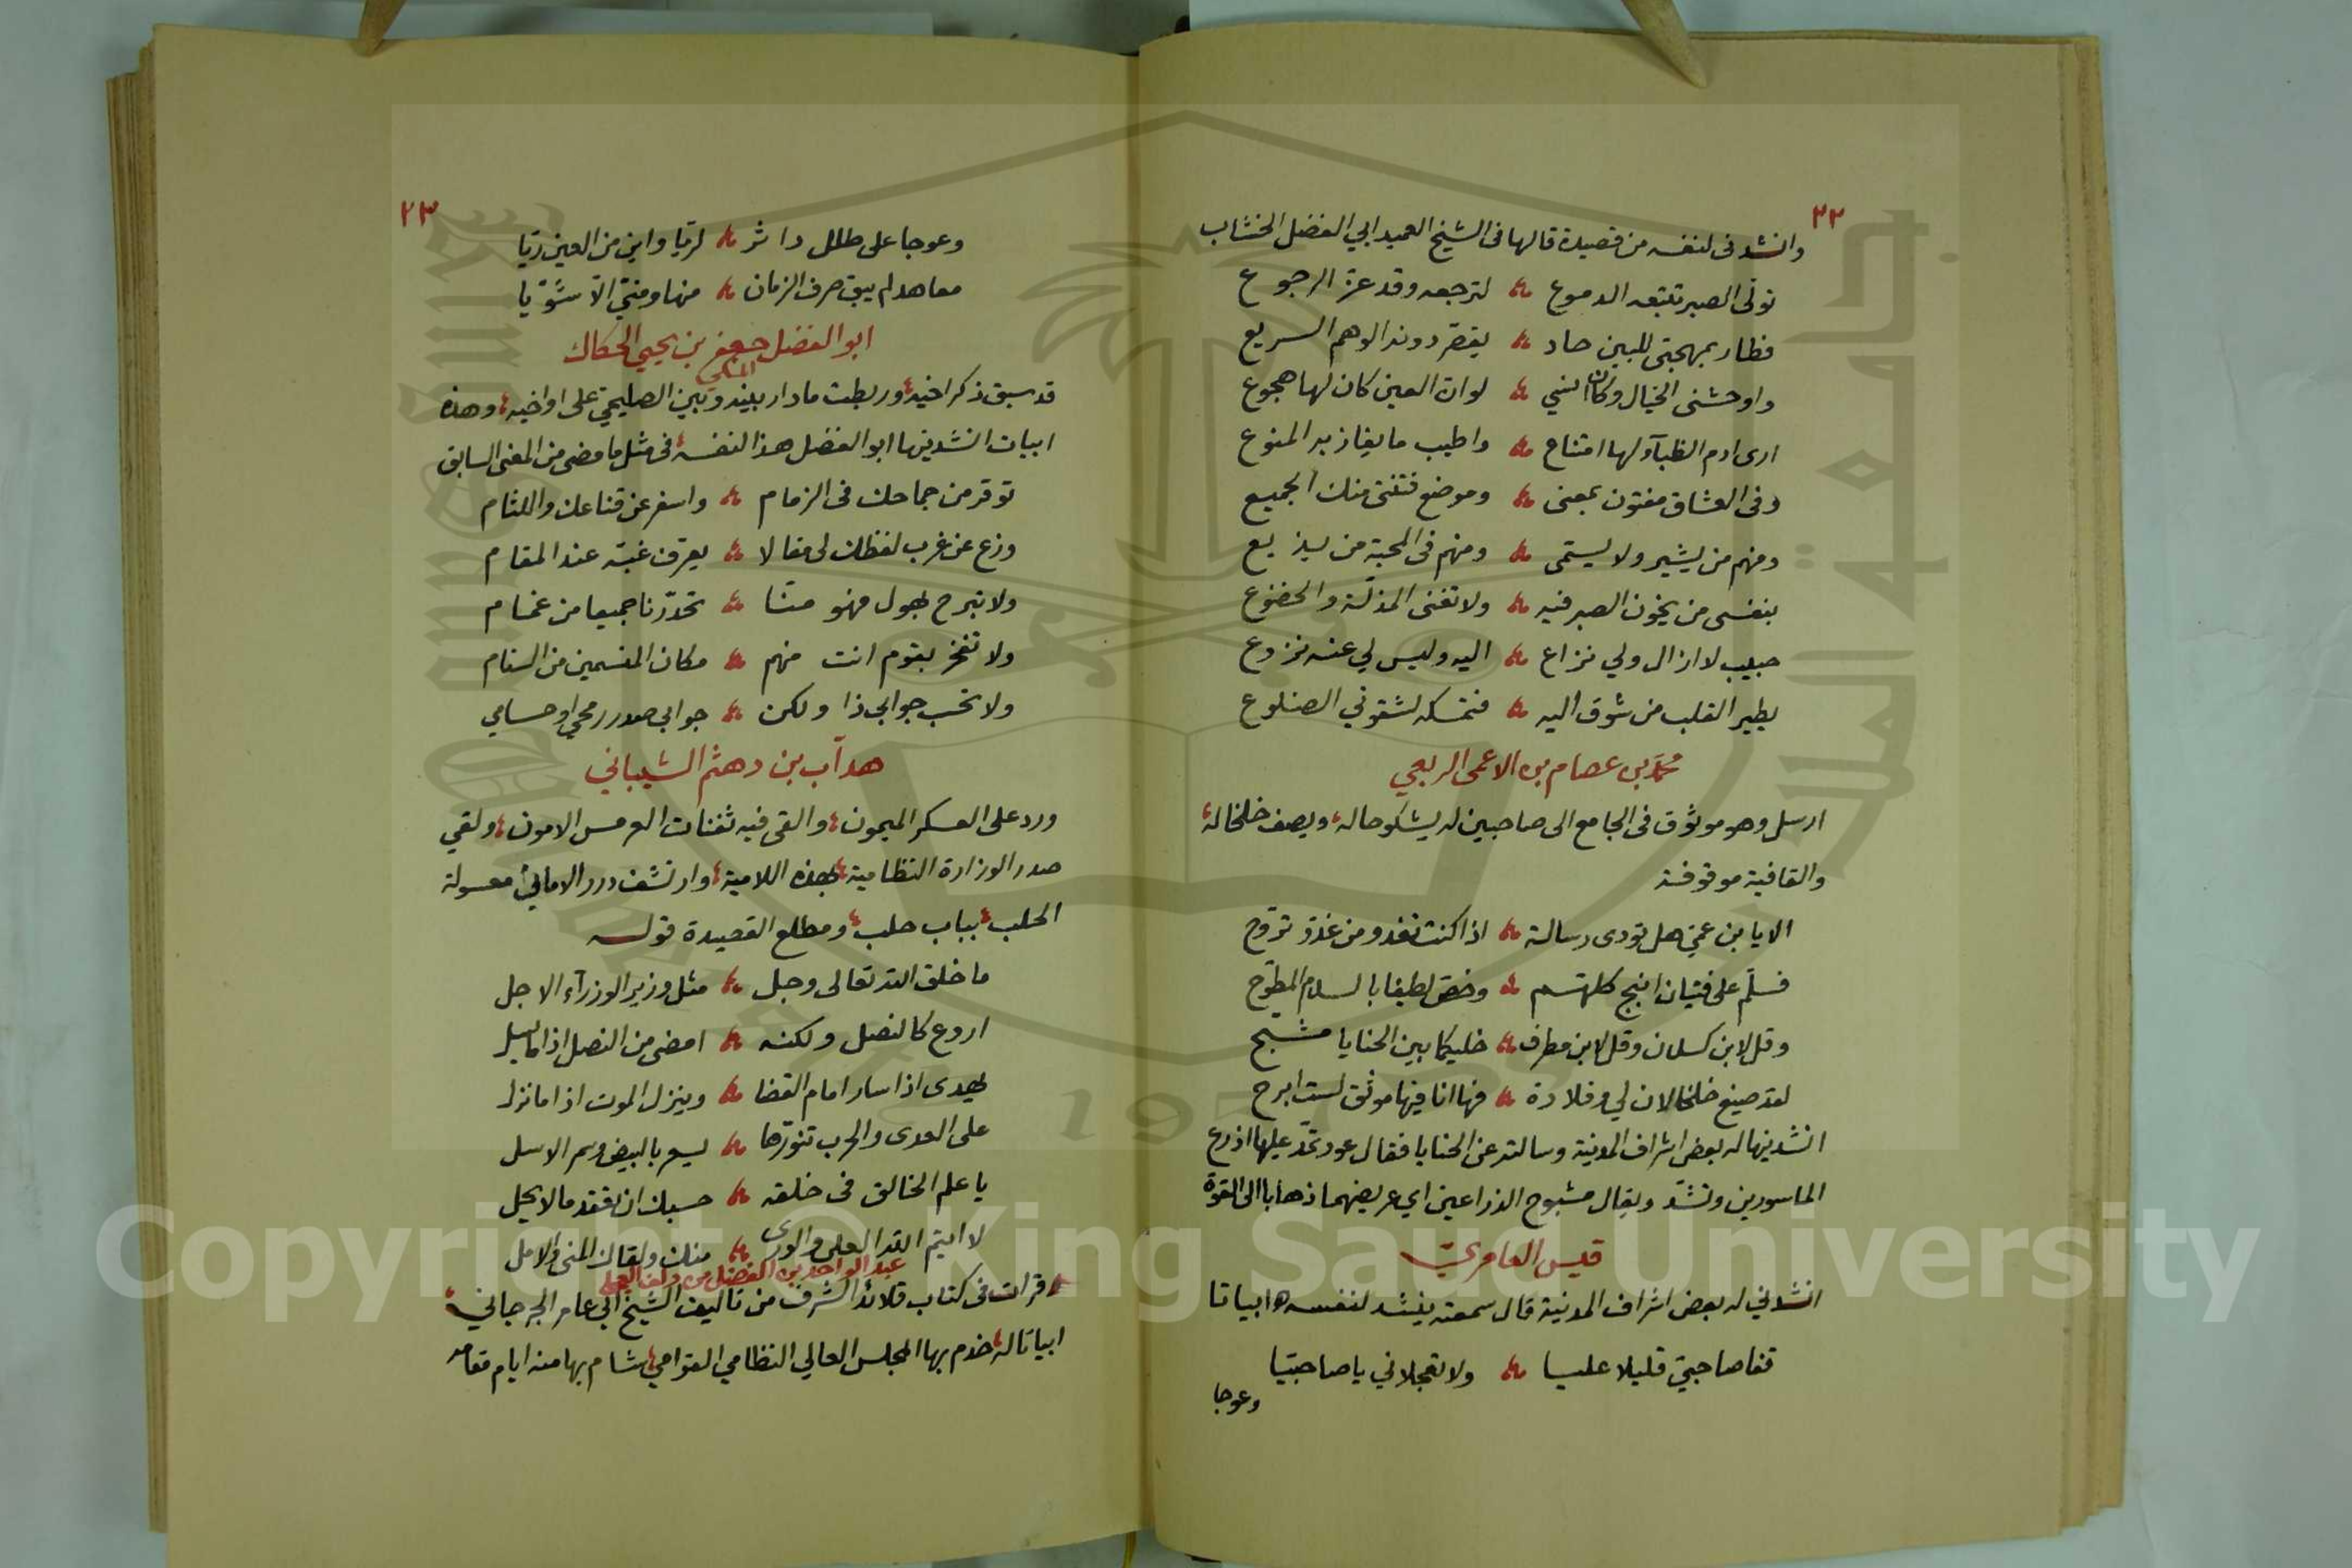 ٢٢
وانشدنى لنفسه من قصيدة قالها فى الشيخ العميد ابي الفضل الخشاب
تولى الصبر تتبعه الدموع لترجعه وقد عزّ الرجوع
فطار بمهجتى للبين حاد يقصّر دونه الوهم السريع
واوحشنى الخيال وكان انسي لو انّ العين كان لها هجوع
ارى ادم الظبآء لها امتناع واطيب ما يفاز به المنوع
وفى العشاق مفتون بمعنى وموضع فتنتى منك الجميع
ومنهم من يشير ولا يسمّى ومنهم فى المحبة من يذيع
بنفسى من يخون الصبر فيه ولا تغنى المذلّة والخضوع
حبيب لا ازال ولي نزاع اليه وليس لي عنه نزوع
يطير القلب من شوق اليه فتمسكه لشقوتي الضلوع
محمّد بن عصام بن الاعمى الربعي
ارسل وهو موثوق فى الجامع الى صاحبين له يشكو حاله ويصف خلخاله
والقافية موقوفة
الا يا بن عمّي هل تودى رسالة اذا كنت تغدو من غدوّ تروّح
فسلّم على فتيان كلهم وخصّ لطيفا بالسلام المطوّح
وقل لابن كسلان وقل لابن مطرف خليكما بين الحنايا مشبح
لقد صيغ خلخالان لي وقلادة فها انا فيها موثق لست ابرح
انشدنيها له بعض اشراف المدينة وسالته عن الحنايا فقال عود تمدّ عليها اذرع
الماسورين وتشدّ ويقال مشبوح الذراعين اي عريضهما ذهابا الى القوّة
قيس العامري
انشدني له بعض اشراف المدينة قال سمعته ينشد لنفسه ابياتا
قفا صاحبيّ قليلا عليا ولا تعجلاني يا صاحبيّا
وعوجا
٢٣
وعوجا على طلل داثر لريّا واين من العين ريّا
معاهد لم يبق صرف الزمان منها ومنّي الّا شويّا
ابو الفضل جعفر بن يحيى الحكاك
المكي
قد سبق ذكر اخيه وربطت ما دار بينه وبين الصليحي على اواخيه وهذه
ابيات انشدنيها ابو الفضل هذا لنفسه فى مثل ما مضى من المعنى السابق
توقر من جماحك فى الزمام واسفر عن قناعك واللثام
وزع عن غرب لفظك لى مقالا يعرف غبّه عند المقام
ولا تبرح بهول فهو منّا تحدّرنا جميعا من غمام
ولا تفخر بقوم انت منهم مكان المنسمين من السنام
ولا تحسب جوابي ذا ولكن جوابي صدر رمحي او حسامي
هدآب بن دهثم الشيباني
ورد على العسكر الميمون والقى فيه ثفنات العرمس الامون ولقي
صدر الوزارة النظامية بهذه اللامية وارتشف درر الامانيّ معسولة
الحلب بباب حلب ومطلع القصيدة قوله
ما خلق الله تعالى وجل مثل وزير الوزرآء الاجل
اروع كالنصل ولكنه امضى من النصل اذا ما يسل
يهدى اذا سار امام القضا وينزل الموت اذا ما نزل
على العدى والحرب تنورّها يسعر بالبيض وسمر الاسل
يا علم الخالق فى خلقه حسبك ان تفقد ما لا يحل
لا ايتم الله العلى والورى منك ولقاك المنى والامل
عبد الواحد بن الفضل بن
قرات فى كتاب قلائد الشرف من تاليف الشيخ ابى عامر الجرجاني
ابياتا له خدم بها المجلس العالي النظامي القوامي شام بها منه ايام مقامه
Copyright © King Saud University
جامعة الملك سعود
King Saud University
1957